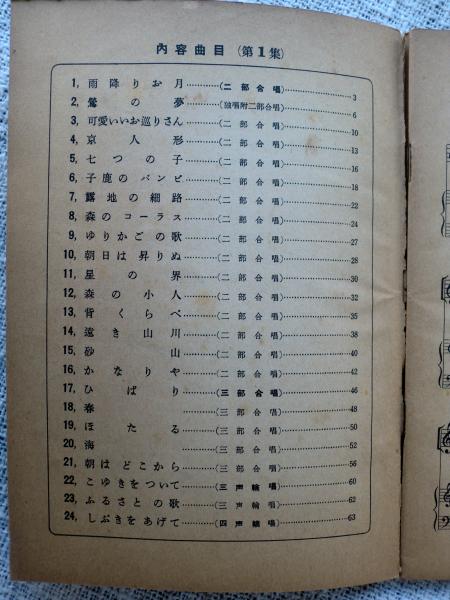 内容曲目（第１集）
1, 雨降りお月……（二部合唱）…… 3
2, 鶯の夢……（独唱附二部合唱）…… 6
3, 可愛いいお巡りさん……（二部合唱）…… 10
4, 京人形……（二部合唱）…… 13
5, 七つの子……（二部合唱）…… 16
6, 子鹿のバンビ……（二部合唱）…… 18
7, 露地の細路……（二部合唱）…… 22
8, 森のコーラス……（二部合唱）…… 24
9, ゆりかごの歌……（二部合唱）…… 27
10, 朝日は昇りぬ……（二部合唱）…… 28
11, 星の界……（二部合唱）…… 30
12, 森の小人……（二部合唱）…… 32
13, 背くらべ……（二部合唱）…… 35
14, 遠き山川……（二部合唱）…… 38
15, 砂山……（二部合唱）…… 40
16, かなりや……（二部合唱）…… 42
17, ひばり……（三部合唱）…… 46
18, 春……（三部合唱）…… 48
19, ほたる……（三部合唱）…… 50
20, 海……（三部合唱）…… 52
21, 朝はどこから……（三部合唱）…… 56
22, こゆきをついて……（三声輪唱）…… 60
23, ふるさとの歌……（三声輪唱）…… 62
24, しぶきをあげて……（四声輪唱）…… 63